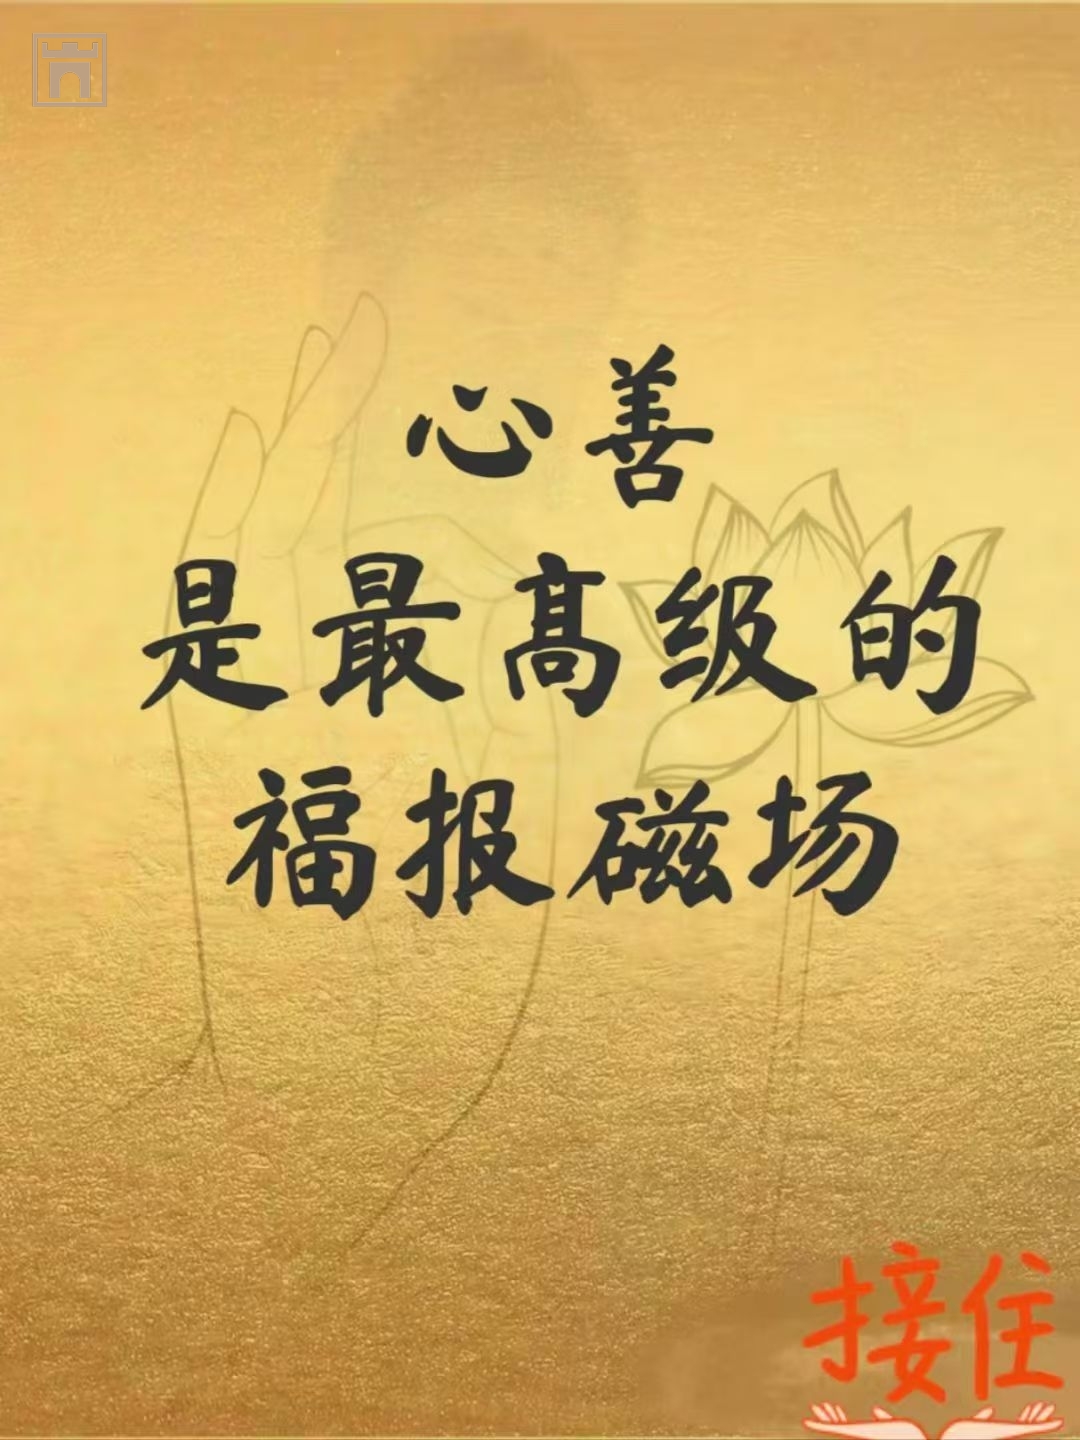 心善
是最高级的
福报磁场
接住